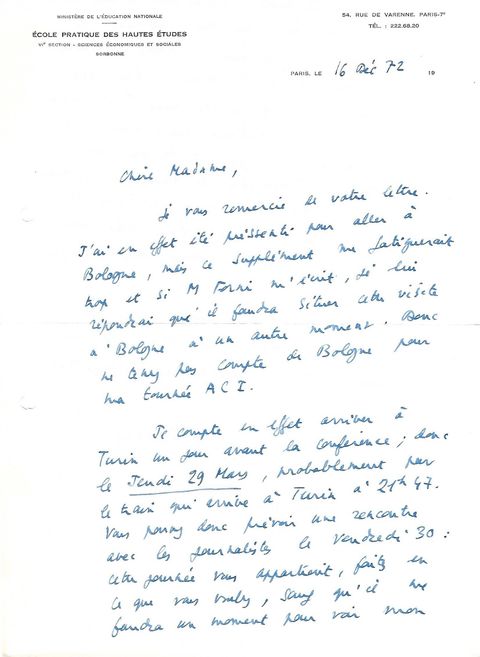 MINISTÈRE DE L'ÉDUCATION NATIONALE
ÉCOLE PRATIQUE DES HAUTES ÉTUDES
VIᵉ SECTION - SCIENCES ÉCONOMIQUES ET SOCIALES
SORBONNE
54, RUE DE VARENNE, PARIS-7ᵉ
TÉL. : 222.68.20
PARIS, LE 16 Déc 72 19
Chère Madame,
Je vous remercie de votre lettre.
J'ai en effet été pressenti pour aller à
Bologne, mais ce supplément me fatiguerait
trop et si M Forni m'écrit, je lui
répondrai qu'il faudra situer cette visite
à Bologne à un autre moment. Donc
ne tenez pas compte de Bologne pour
ma tournée ACI.
Je compte en effet arriver à
Turin un jour avant la conférence ; donc
le Jeudi 29 Mars, probablement par
le train qui arrive à Turin à 21h47.
Vous pouvez donc prévoir une rencontre
avec les journalistes le vendredi 30 :
cette journée vous appartient, faites en
ce que vous voulez, sauf qu'il me
faudra un moment pour voir mon